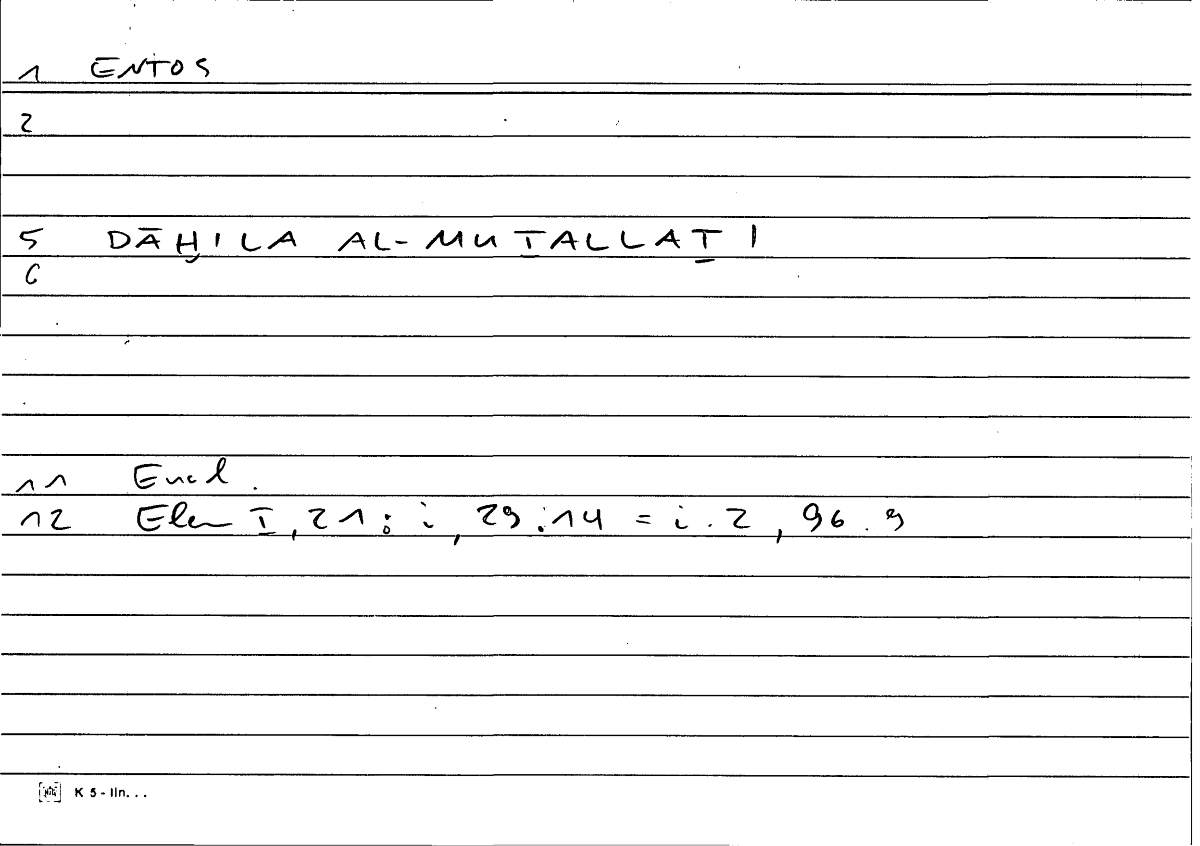 1 ENTOS
2
5 DĀḪILA AL-MUṮALLAṮI
6
11 Eucl.
12 Elem I, 21 : i, 29 : 14 = i. 2, 96. 9
K 5 - lin...